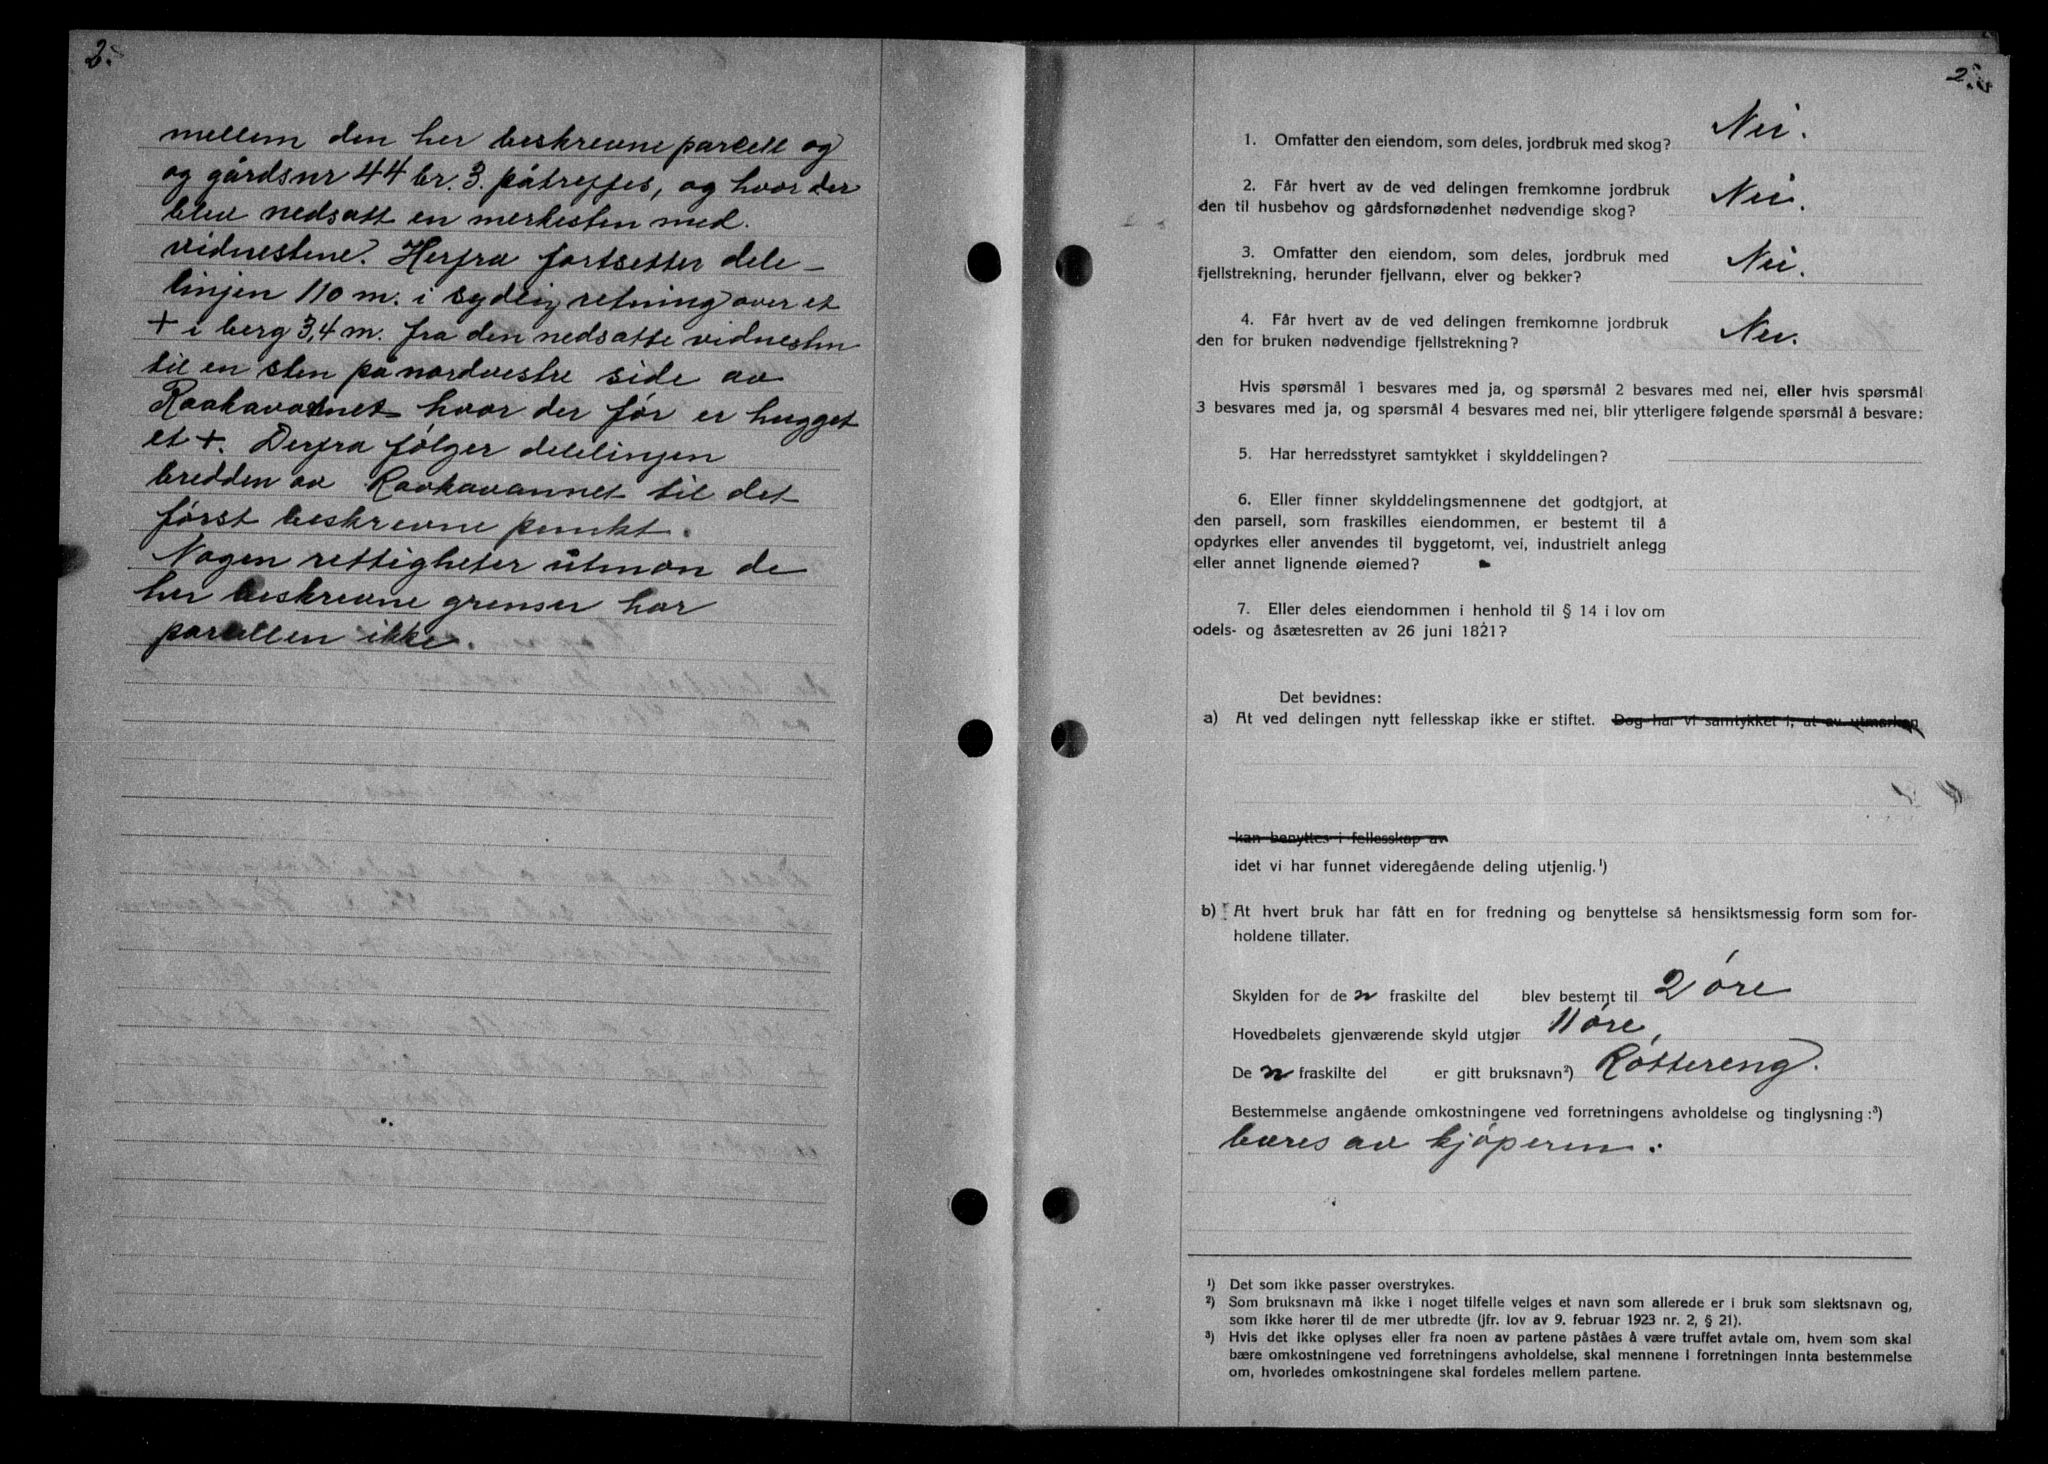 2.
mellem den her beskrevne parcell og
og gårdsnr 44 br. 3. påtreffes, og hvor der
blev nedsatt en merkesten med.
vidnestene. Herfra fortsetter dele-
linjen 110 m. i sydlig retning over et
+ i berg 3,4 m. fra den nedsatte vidnesten
til en sten på nordvestre side av
Raakavatnet hvor der før er hugget
et +. Derfra følger delelinjen
bredden av Raakavannet til det
først beskrevne punkt.
Nogen rettigheter utman de
her beskrevne grenser har
parcellen ikke.
2.
1. Omfatter den eiendom, som deles, jordbruk med skog? Nei.
2. Får hvert av de ved delingen fremkomne jordbruk
den til husbehov og gårdsfornødenhet nødvendige skog? Nei.
3. Omfatter den eiendom, som deles, jordbruk med
fjellstrekning, herunder fjellvann, elver og bekker? Nei.
4. Får hvert av de ved delingen fremkomne jordbruk
den for bruken nødvendige fjellstrekning? Nei.
Hvis spørsmål 1 besvares med ja, og spørsmål 2 besvares med nei, eller hvis spørsmål
3 besvares med ja, og spørsmål 4 besvares med nei, blir ytterligere følgende spørsmål å besvare:
5. Har herredsstyret samtykket i skylddelingen?
6. Eller finner skylddelingsmennene det godtgjort, at
den parsell, som fraskilles eiendommen, er bestemt til å
opdyrkes eller anvendes til byggetomt, vei, industrielt anlegg
eller annet lignende øiemed?
7. Eller deles eiendommen i henhold til § 14 i lov om
odels- og åsætesretten av 26 juni 1821?
Det bevidnes:
a) At ved delingen nytt fellesskap ikke er stiftet. Dog har vi samtykket i, at av utmarken
kan benyttes i fellesskap av
idet vi har funnet videregående deling utjenlig.¹)
b) At hvert bruk har fått en for fredning og benyttelse så hensiktsmessig form som for-
holdene tillater.
Skylden for den fraskilte del blev bestemt til 2 øre
Hovedbølets gjenværende skyld utgjør 11 øre,
Den fraskilte del er gitt bruksnavn²) Røttereng.
Bestemmelse angående omkostningene ved forretningens avholdelse og tinglysning:³)
bæres av kjøperen.
¹) Det som ikke passer overstrykes.
²) Som bruksnavn må ikke i noget tilfelle velges et navn som allerede er i bruk som slektsnavn og,
som ikke hører til de mer utbredte (jfr. lov av 9. februar 1923 nr. 2, § 21).
³) Hvis det ikke oplyses eller fra noen av partene påståes å være truffet avtale om, hvem som skal
bære omkostningene ved forretningens avholdelse, skal mennene i forretningen innta bestemmelse
om, hvorledes omkostningene skal fordeles mellem partene.